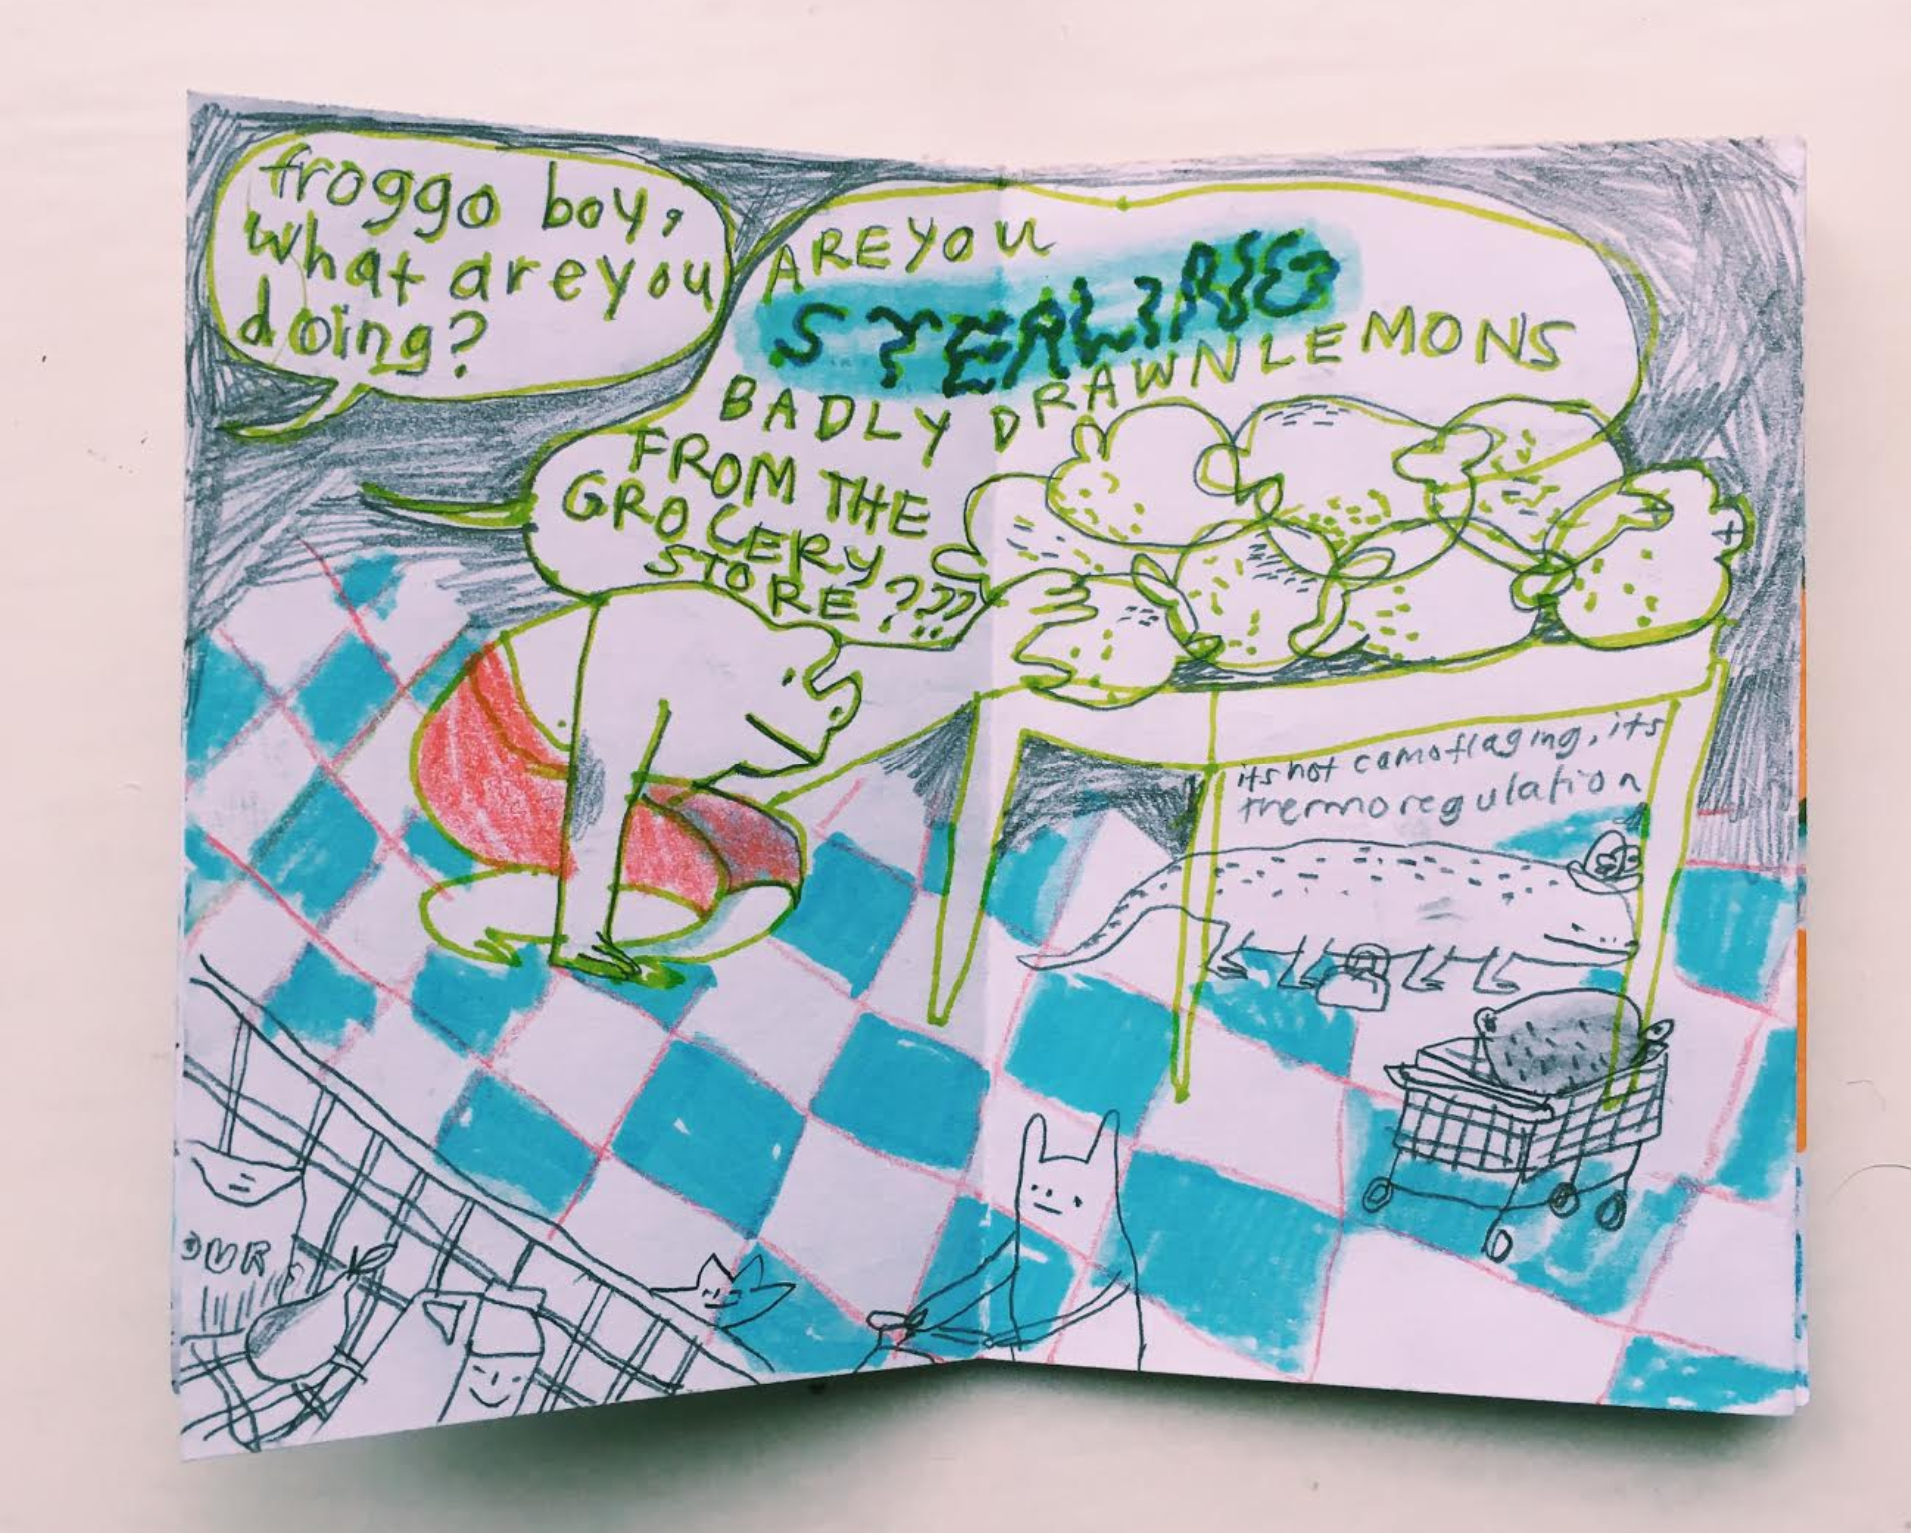 froggo boy,
what are you
doing?
ARE YOU
STEALING
BADLY DRAWN LEMONS
FROM THE
GROCERY
STORE ????
its not camoflaging, its
thermoregulation
OUR